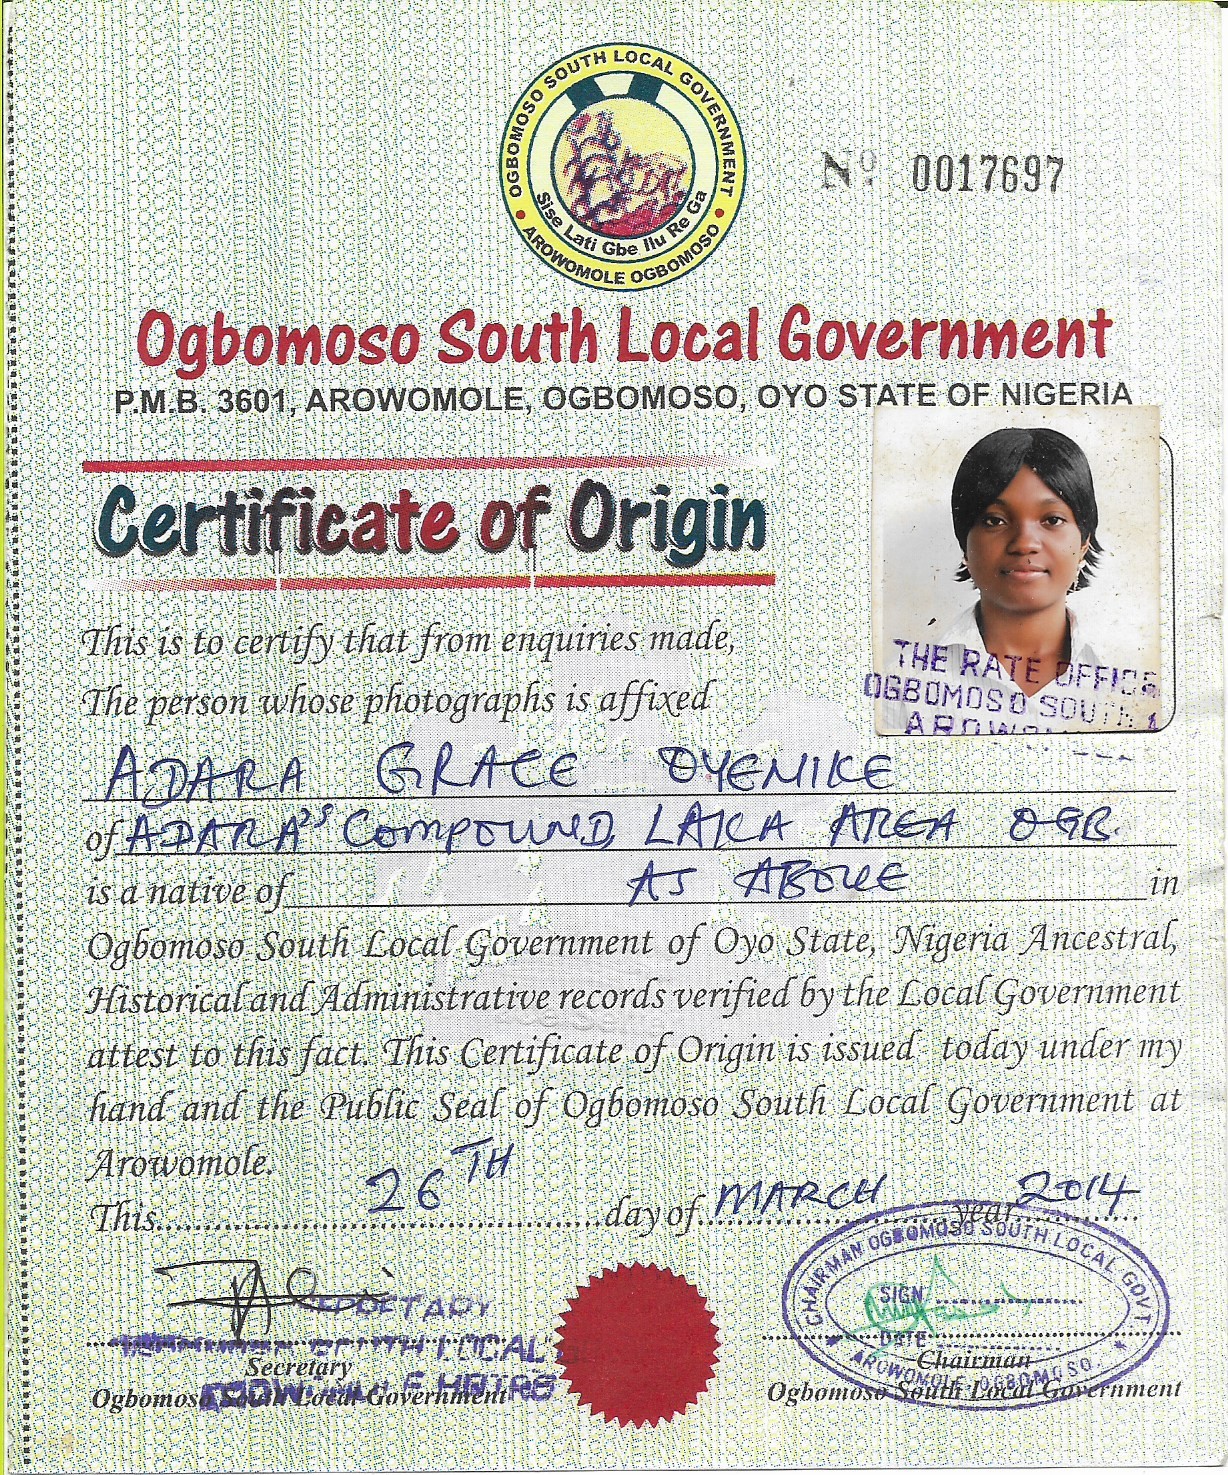 OGBOMOSO SOUTH LOCAL GOVERNMENT
Sise Lati Gbe Ilu Re Ga
AROWOMOLE OGBOMOSO
Nº 0017697
Ogbomoso South Local Government
P.M.B. 3601, AROWOMOLE, OGBOMOSO, OYO STATE OF NIGERIA
Certificate of Origin
THE RATE OFFICE
OGBOMOSO SOUTH
This is to certify that from enquiries made,
The person whose photographs is affixed
ADARA GRACE OYEMIKE
of ADARA'S COMPOUND, LAKA AREA OGB.
is a native of AS ABOVE in
Ogbomoso South Local Government of Oyo State, Nigeria Ancestral,
Historical and Administrative records verified by the Local Government
attest to this fact. This Certificate of Origin is issued today under my
hand and the Public Seal of Ogbomoso South Local Government at
Arowomole.
This 26TH day of MARCH year 2014
SECRETARY
SOUTH LOCAL
Secretary
Ogbomoso South Local Government
CHAIRMAN OGBOMOSO SOUTH LOCAL GOVT.
SIGN
DATE
AROWOMOLE OGBOMOSO.
Chairman
Ogbomoso South Local Government